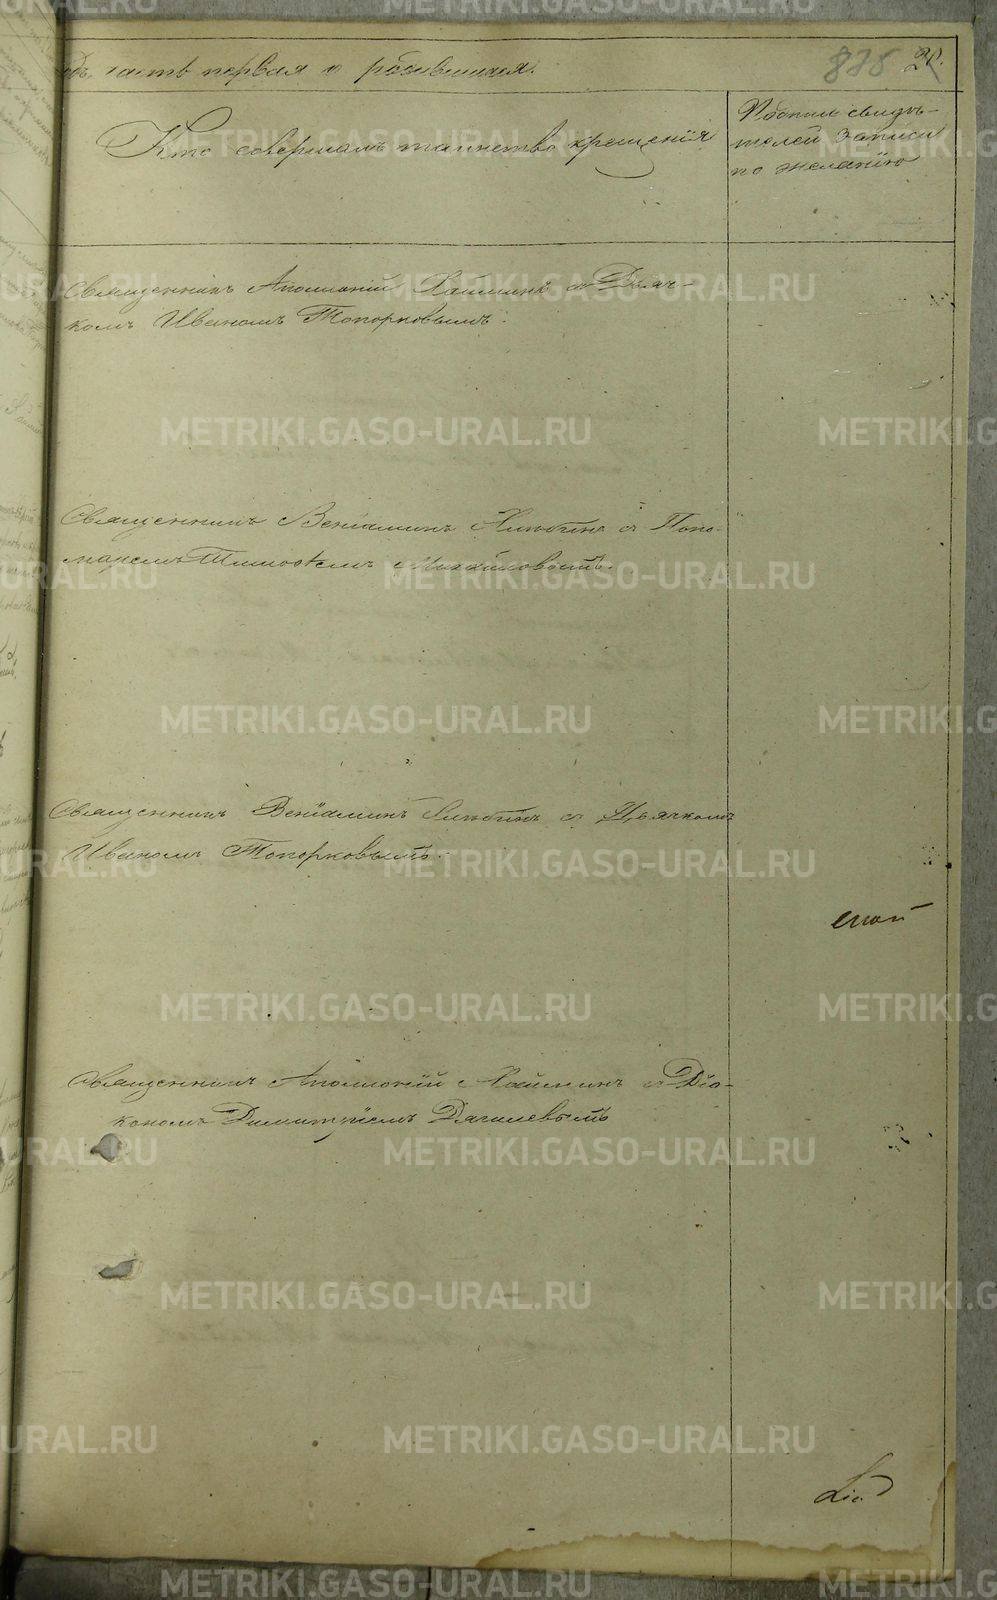 METRIKI.GASO-URAL.RU
одъ, часть первая о родившихся.
875
Кто совершалъ таинство крещенія
Рбопись свидѣ-
телей записи
по желанію
Священникъ Аполлоній съ Дьяч-
комъ Иваномъ Топорковымъ.
Священникъ Веніаминъ съ Поно-
маремъ Тимофеемъ Михайловымъ.
Священникъ Веніаминъ съ Дьячкомъ
Иваномъ Топорковымъ.
Священникъ Аполлоній съ Діа-
кономъ Димитріемъ Дягилевымъ